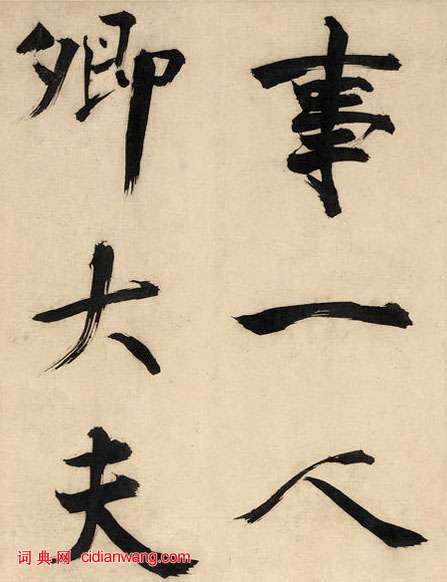 事一人
卿大夫
词典网 cidianwang.com